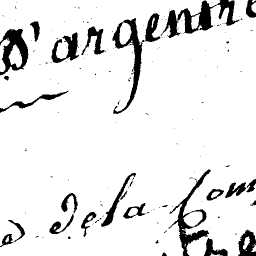 D'argentre
de la Com